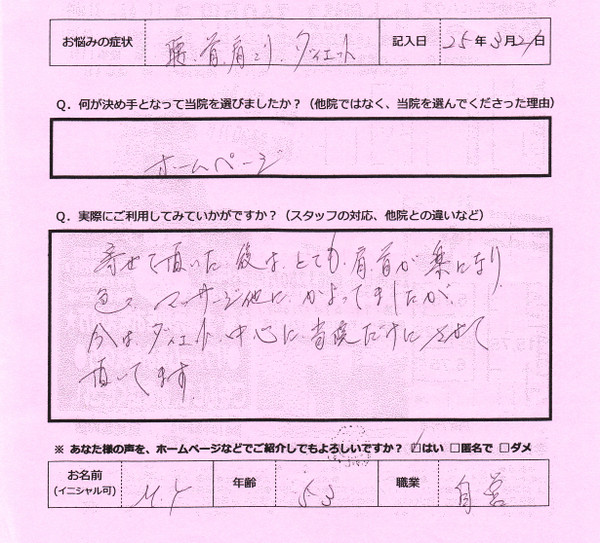 お悩みの症状 腰、首、肩こり、ダイエット 記入日 25年3月21日
Q. 何が決め手となって当院を選びましたか？（他院ではなく、当院を選んでくださった理由）
ホームページ
Q. 実際にご利用してみていかがですか？（スタッフの対応、他院との違いなど）
寄せて頂いた後は、とても、肩、首が楽になり
色々、マッサージ他に、かよってましたが、
今は、ダイエット、中心に、当院だけに、させて
頂いてます
※ あなた様の声を、ホームページなどでご紹介してもよろしいですか？ ☑はい □匿名で □ダメ
お名前 M.Y 年齢 53 職業 自営
(イニシャル可)